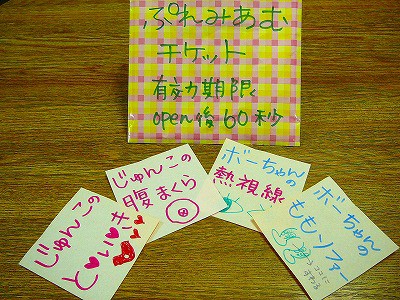 ぷれみあむ
チケット
有効期限
open後60秒
じゅんこの
じゅんこの
腹まくら
ボーちゃんの
熱視線
ボーちゃんの
ももソファー
ココに
すわる